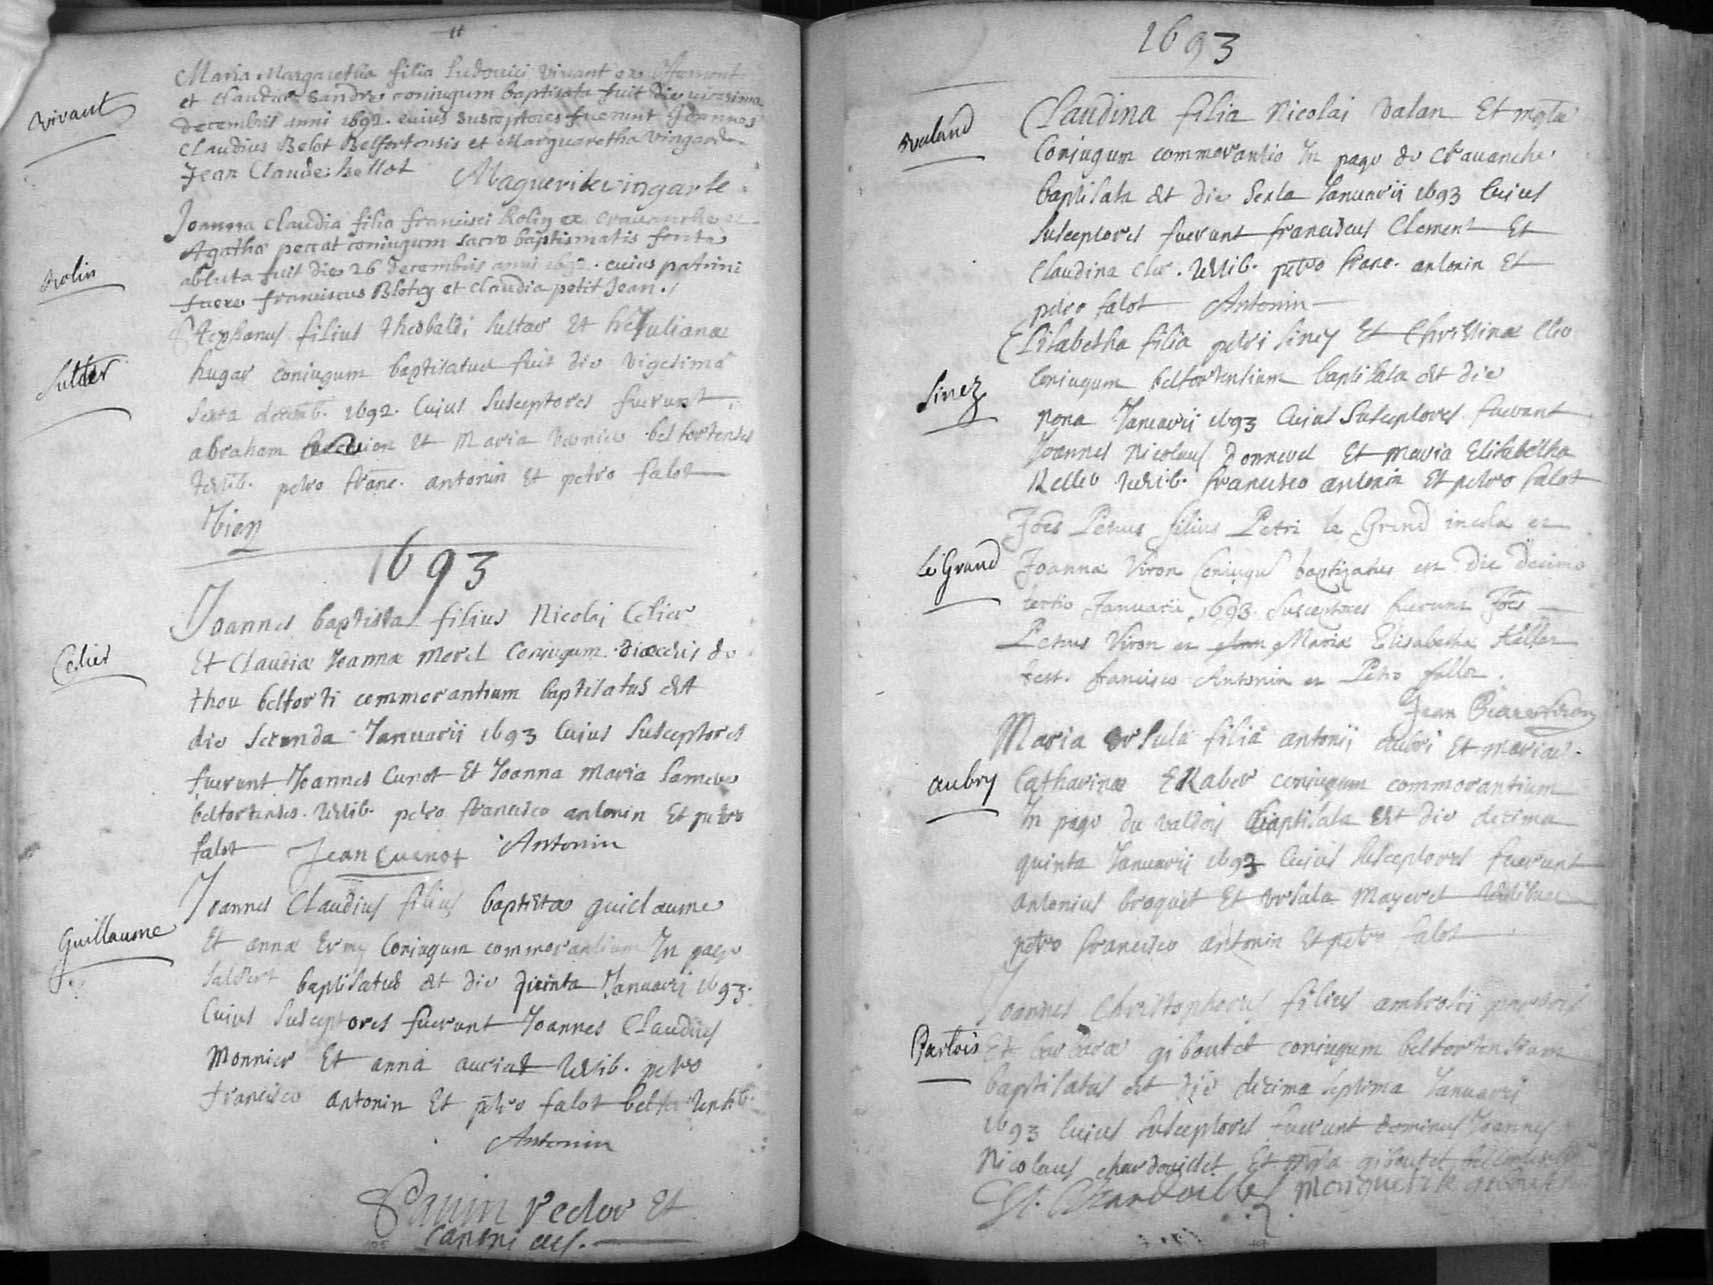 Vivant
Maria Margaretha filia Ludovici Vivant ex
et Claudiae Sandre coniugum baptisata fuit die vicesima
decembris anni 1692. cuius susceptores fuerunt Joannes
Claudius Belot Belfortensis et Marguaretha Vingard
Jean Claude bellot Magueritevingarte
Rolin
Joanna Claudia filia francisci Rolin ex Cravanche et
Agathae peccat coniugum sacro baptismatis fonte
abluta fuit die 26 decembris anni 1692. cuius patrini
fuere franciscus Blotey et Claudia petit Jean.
Sutter
Stephanus filius theobaldi Suttar Et Julianae
hugar coniugum baptisatus fuit die Vigesima
Sexta decemb. 1692. Cuius Susceptores fuerunt
abraham Et Maria belfortenses
testib. petro franc. antonin Et petro falot
1693
Celier
Joannes baptista filius Nicolai Celier
Et Claudiae Joannae Morel Coniugum dioecesis de
thou belforti commorantium baptisatus est
die Secunda Januarii 1693 Cuius Susceptores
fuerunt Joannes Cunot Et Joanna Maria
belfortenses. testib. petro francisco antonin Et petro
falot Jean Cuenot Antonin
Guillaume
Joannes Claudius filius baptistae guillaume
Et annae Ermy Coniugum commorantium In pago
Salbert baptisatus est die quinta Januarii 1693.
Cuius Susceptores fuerunt Joannes Claudius
Monnier Et anna testib. petro
francisco antonin Et petro falot
Antonin
rector Et
Canonicus.
1693
Valand
Claudina filia Nicolai Valan Et
Coniugum commorantio In pago de Cravanche
baptisata est die Sexta Januarii 1693 Cuius
Susceptores fuerunt franciscus Clement Et
Claudina Cler. testib. petro franc. antonin Et
petro falot Antonin
Sinez
Elisabetha filia petri Siney Et Christinae Cleo
Coniugum belfortensium baptisata est die
Nona Januarii 1693 Cuius Susceptores fuerunt
Joannes Nicolaus Et Maria Elisabetha
Keller testib. francisco antonin Et petro falot
le Grand
Joes Petrus filius Petri le Grand incola et
Joanna Viron Coniugu baptizatus est die decimo
tertio Januarii 1693. Susceptores fuerunt Joes
Petrus Viron et Maria Elisabetha Keller
test. francisco Antonin et Petro fallot.
Jean Piere Viron
aubry
Maria Ursula filia antonii aubri Et mariae
Catharinae coniugum commorantium
In pago du Valdoy baptisata Est die decima
quinta Januarii 1693 Cuius Susceptores fuerunt
Antonius broquet Et Ursula Mayeret testibus
petro francisco antonin Et petro falot
Partois
Joannes Christophorus filius ambrosii
Et barbarae giboutet coniugum belfortensium
baptisatus est die decima septima Januarii
1693 Cuius Susceptores fuerunt dominus Joannes
Nicolaus chardouillet Et giboutet